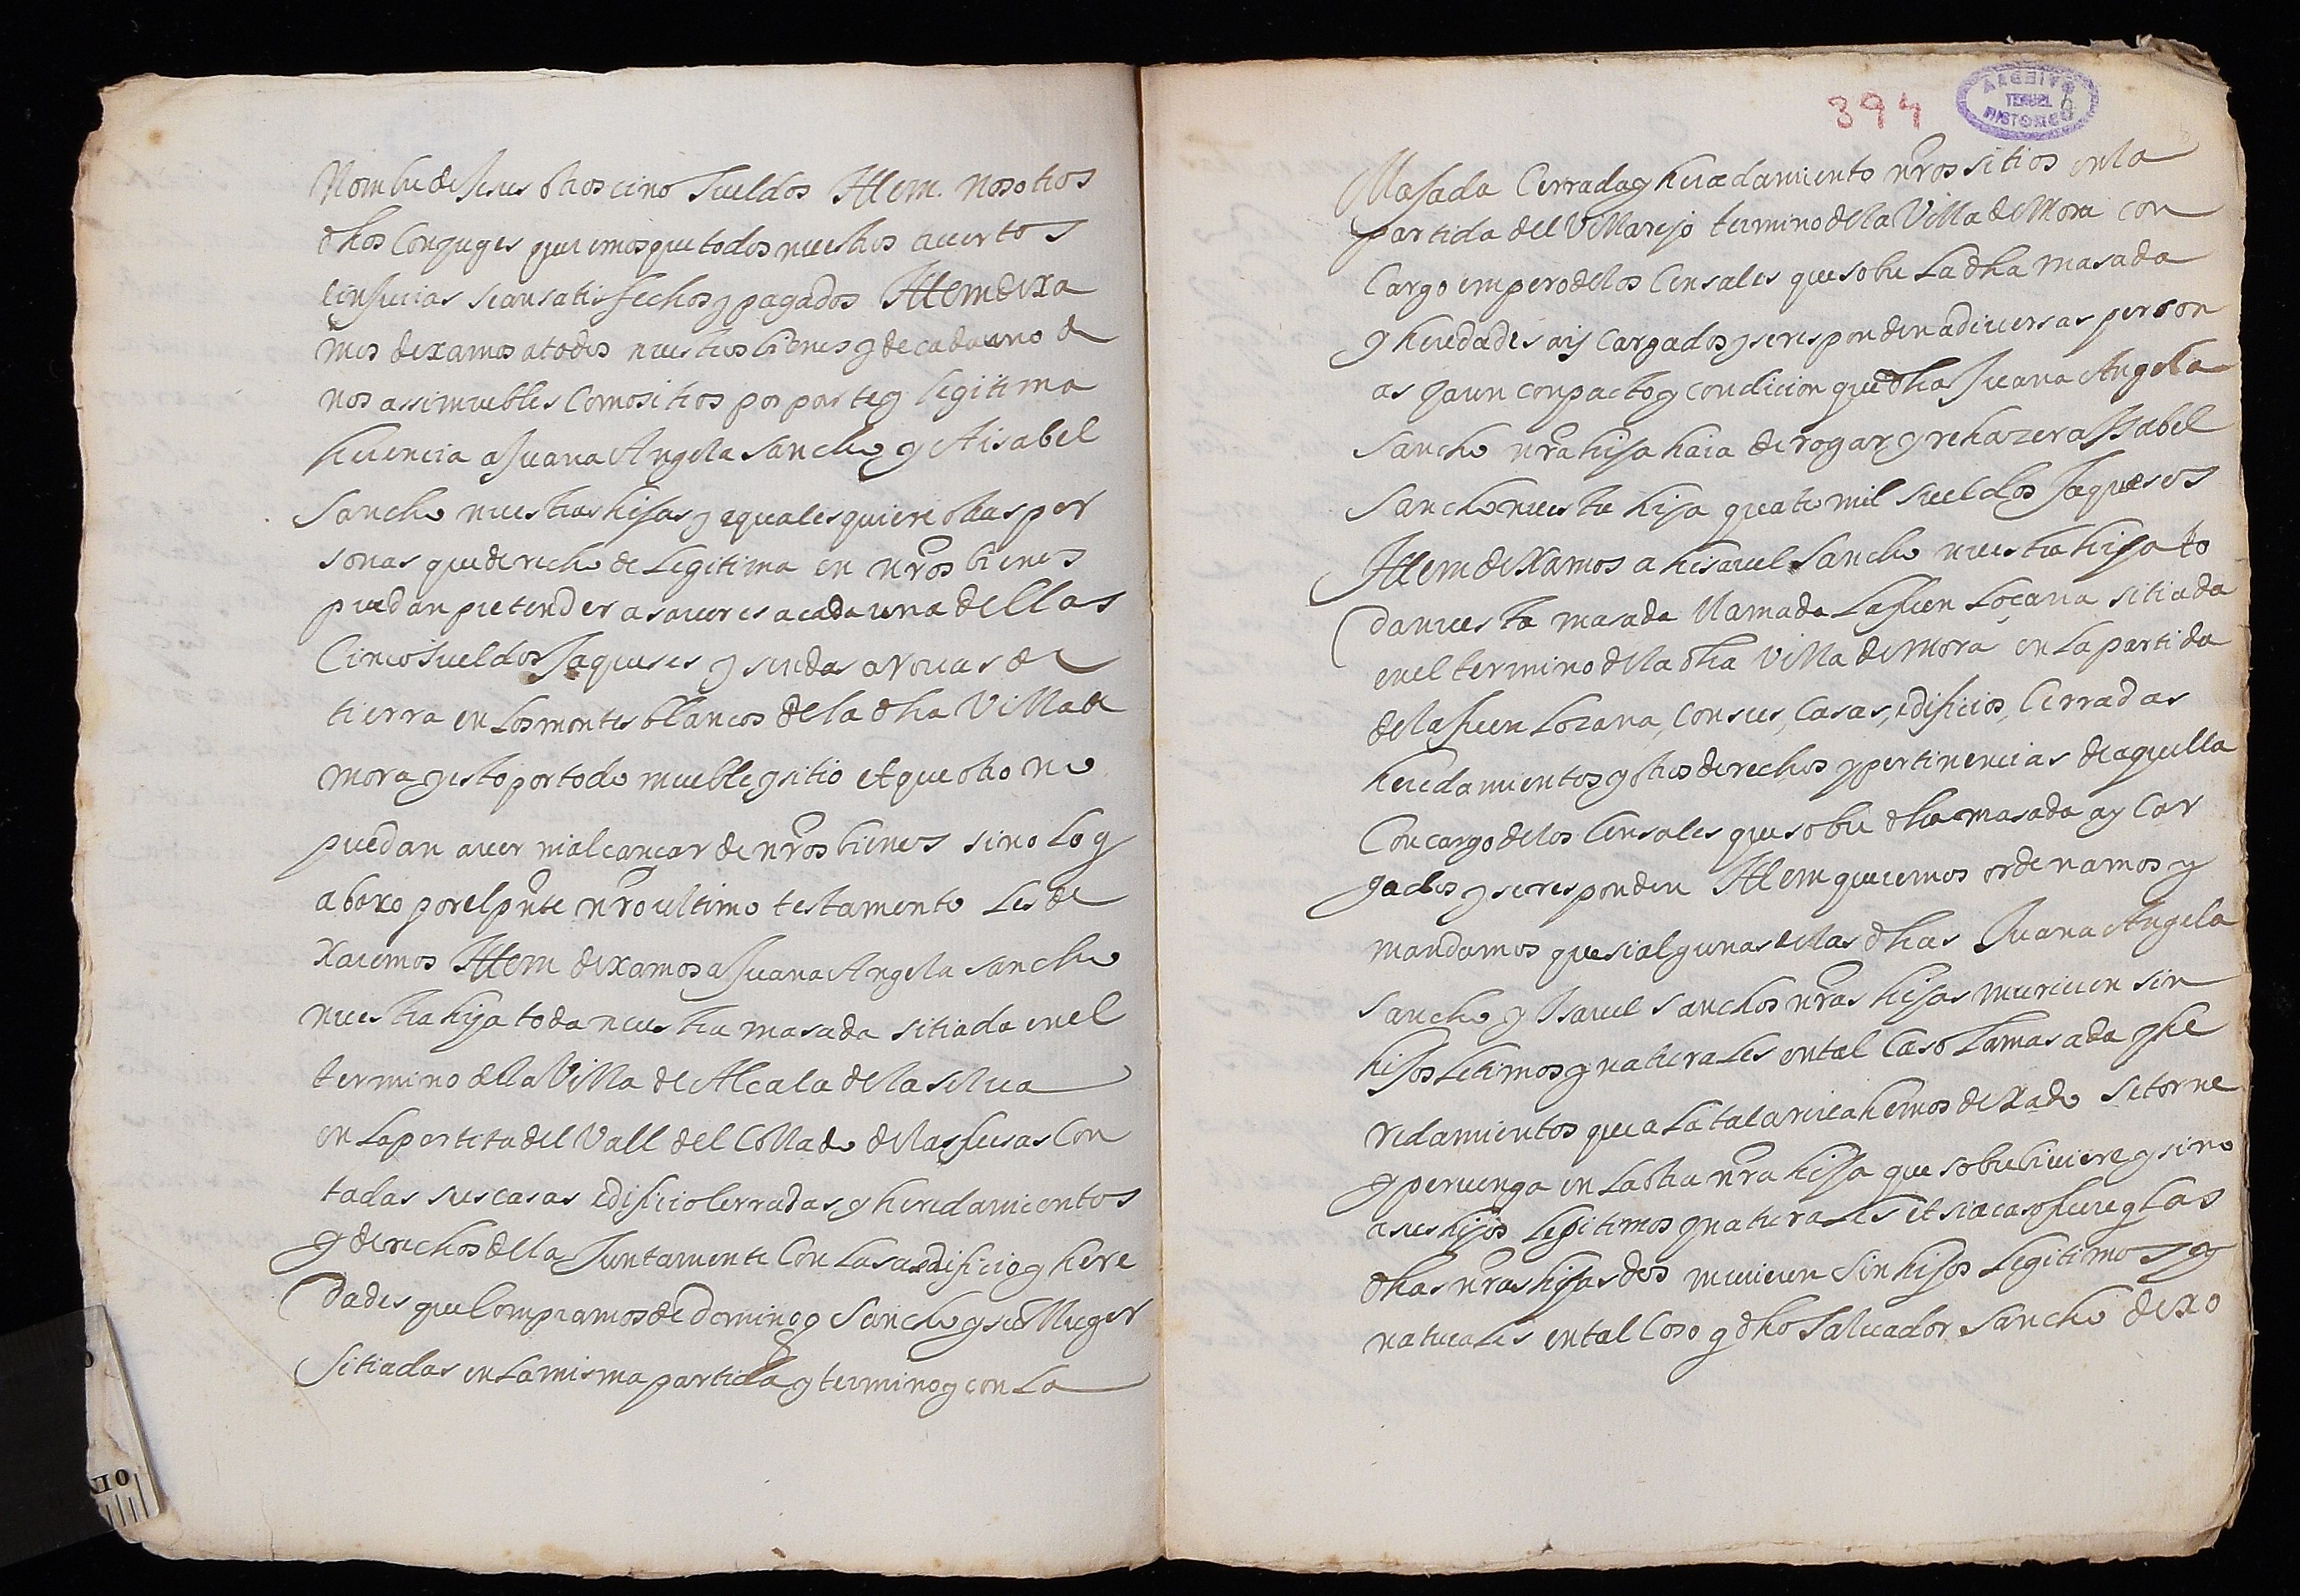 Nombre de Jesus otros cinco sueldos Ittem. nosotros
dhos Conjuges queremos que todos nuestros tuertos
e injurias sean satisfechos y pagados Ittem dexa
mos dexamos a todos nuestros bienes y de cada uno de
nos assi muebles como sitios por parte y legitima
herencia a Juana Angela Sancho y A isabel
Sancho nuestras hijas y a qualesquiere otras per
sonas que derecho de Legitima en nros bienes
puedan pretender a saver es a cada una dellas
Cinco sueldos Jaqueses y sendas arovas de
tierra en Los montes blancos de la dha Villa de
mora y esto por todo mueble y sitio et que otro no
puedan aver ni alcançar de nros bienes sino Lo q
abaxo por el pnte nro ultimo testamento Les de
xaremos Ittem dexamos a Juana Angela Sancho
nuestra hija toda nuestra masada sitiada en el
termino de la Villa de Alcala de la selva
en La partita del Vall del Collado de las fusas Con
todas sus casas edificio Cerradas y heredamientos
y derechos de lla Juntamente Con Las edificio y here
dades que Compramos de Domingo Sancho y su Muger
Sitiadas en La misma partida y termino y con La
394
ARCHIVO
TERUEL
HISTORICO
Masada Cerrada y heredamiento nros sitios en la
partida del Villarejo termino de la Villa de Mora con
Cargo empero de los Censales que sobre La dha masada
y heredades ay Cargados y se responden a diversas person
as y aun con pacto y condicion que dha Juana Angela
Sancho nra hija haia de rogar y rehazer a Isabel
Sancho nuestra hija quatro mil sueldos Jaqueses
Ittem dexamos a hisavel Sancho nuestra hija to
da nuestra masada llamada La fuen Loçana sitiada
en el termino de la dha Villa de Mora en La partida
de la fuen Lozana, con sus, Casas, edificios, Cerradas
heredamientos y otros derechos y pertinencias de aquella
Con cargo de los Censales que sobre dha masada ay Car
gados y se responden Ittem queremos ordenamos y
mandamos que si algunas de las dhas Juana Angela
Sancho y Isavel Sanchos nras hijas murieren sin
hijos Letimos y naturales en tal Caso La masada y he
redamientos que a La tal arriva hemos dexado se torne
y pervenga en La otra nra hija que sobreviviere y sino
a sus hijos Legitimos y naturales et si a caso fuere q Las
dhas nras hijas dos murieren sin hijos Legitimos y
naturales en tal Caso q dho Salvador Sancho dexo